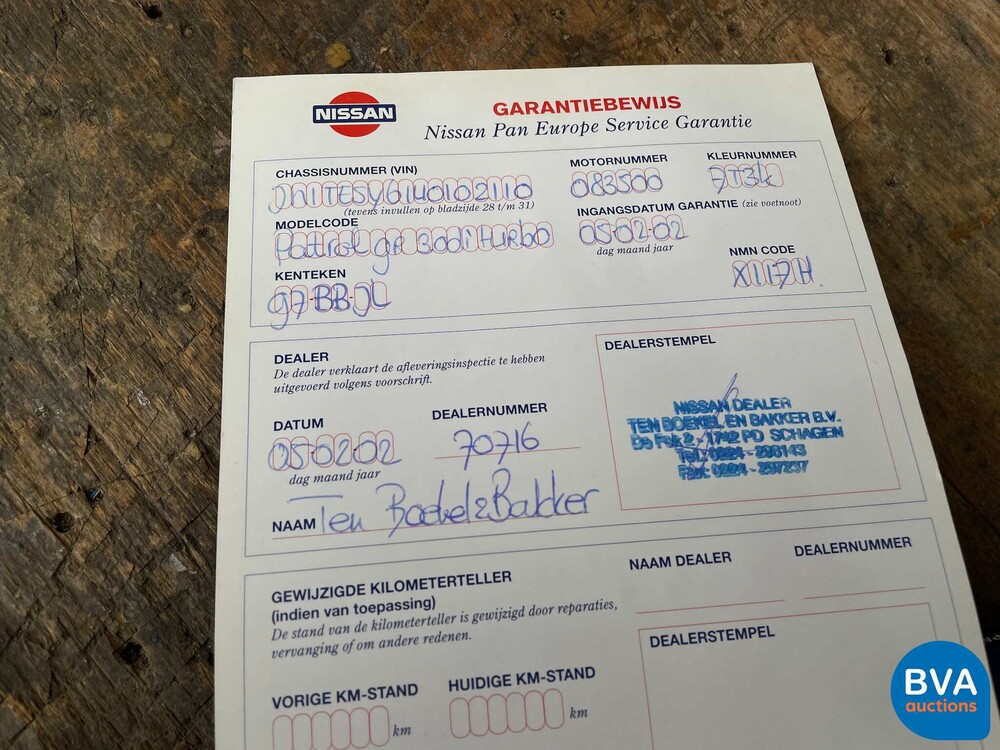 NISSAN
GARANTIEBEWIJS
Nissan Pan Europe Service Garantie
CHASSISNUMMER (VIN)
MOTORNUMMER
KLEURNUMMER
JN1TESY61U0102110
083500
(tevens invullen op bladzijde 28 t/m 31)
MODELCODE
INGANGSDATUM GARANTIE (zie voetnoot)
Patrol gr 300i turbo
05-02-02
dag maand jaar
KENTEKEN
NMN CODE
97-BB-JL
X117H
DEALER
De dealer verklaart de afleveringsinspectie te hebben
uitgevoerd volgens voorschrift.
DEALERSTEMPEL
DATUM
DEALERNUMMER
05-02-02
70716
dag maand jaar
NAAM Ten Boekel & Bakker
NISSAN DEALER
TEN BOEKEL EN BAKKER B.V.
De Fok 2 - 1742 PD SCHAGEN
Tel: 0224 - 296143
Fax: 0224 - 297237
GEWIJZIGDE KILOMETERTELLER
(indien van toepassing)
De stand van de kilometerteller is gewijzigd door reparaties,
vervanging of om andere redenen.
NAAM DEALER
DEALERNUMMER
DEALERSTEMPEL
VORIGE KM-STAND
HUIDIGE KM-STAND
km
km
BVA
auctions